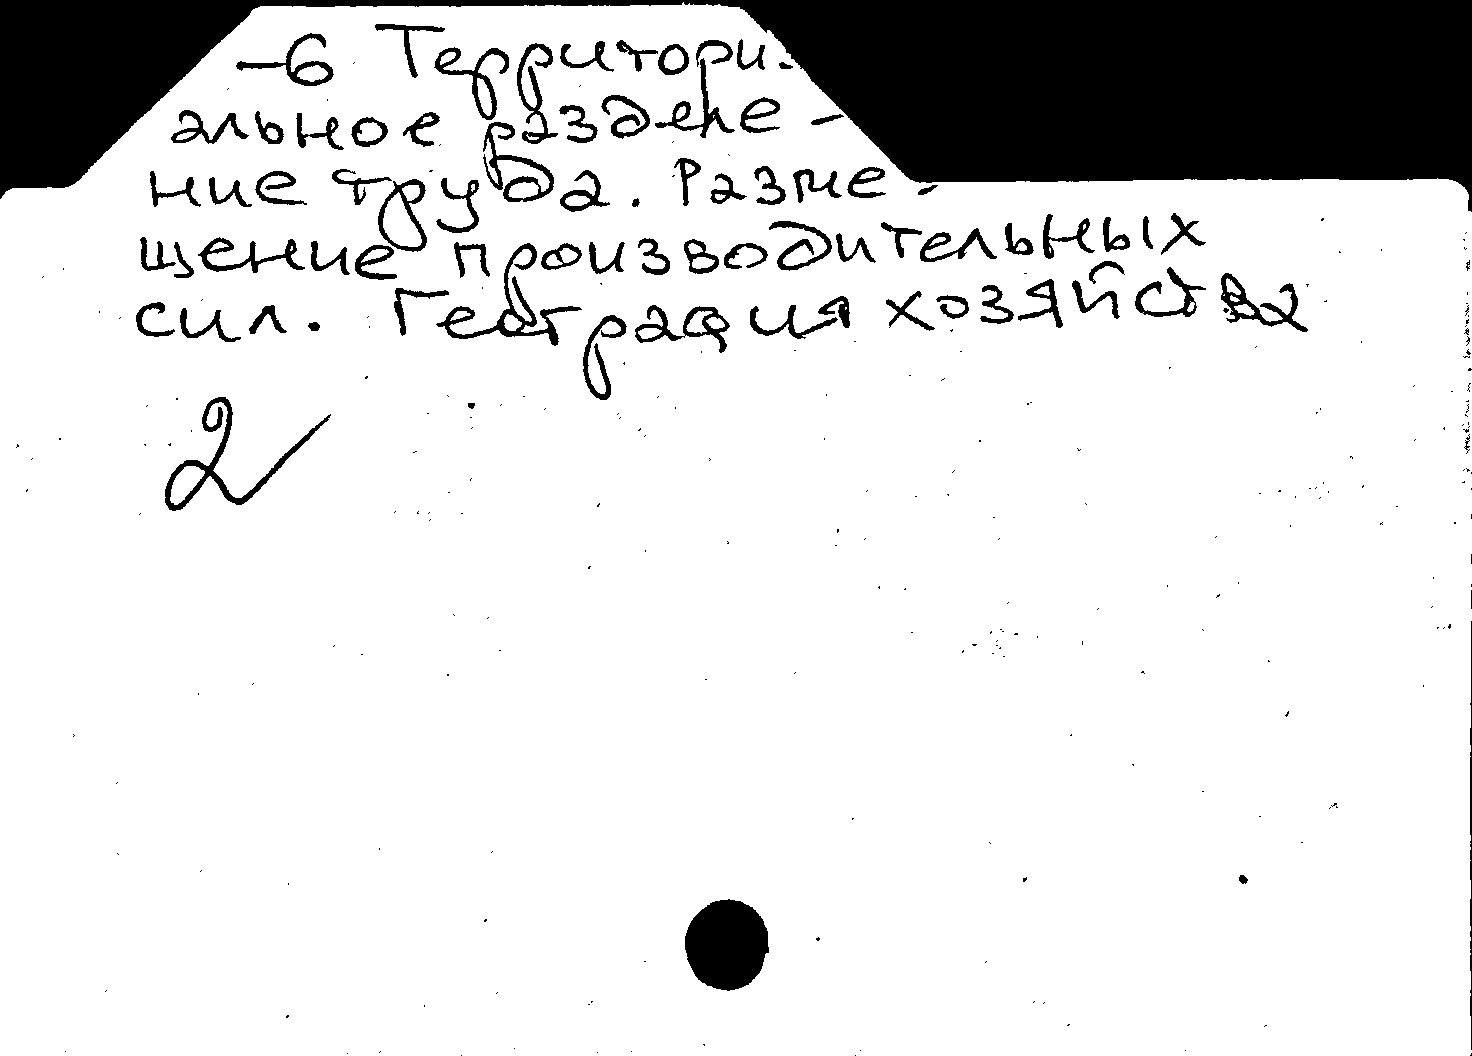 -6 Территори-
альное разделе-
ние труда. Разме-
щение производительных
сил. География хозяйства
2